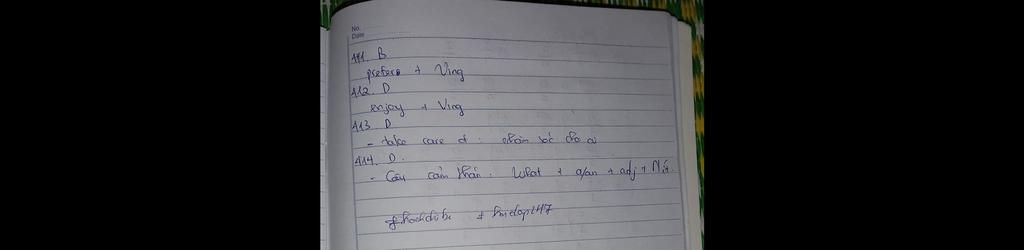 No.
Date
411. B
prefers + Ving
412. D
enjoy + Ving
413. D
- take care of : chăm sóc cho ai
414. D.
- Câu cảm thán : What + a/an + adj + N